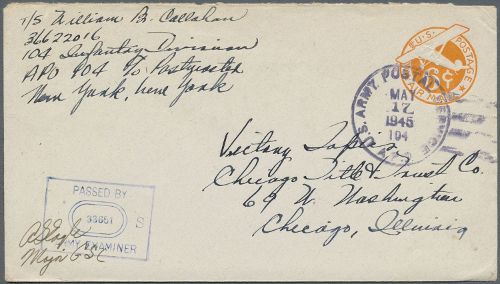 T/5 William B. Callahan
36622016
104 Infantry Division
APO 104 c/o Postmaster
New York, New York
U.S. POSTAGE
6C
AIR MAIL
U.S. ARMY POSTAL SERVICE
MAY
17
1945
104
A.P.O.
Victory Tapers
Chicago Title & Trust Co.
69 W. Washington
Chicago, Illinois
PASSED BY
33651
S
ARMY EXAMINER
Major